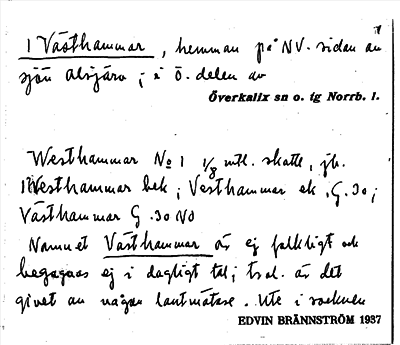 1 Västhammar, hemman på NV. sidan av
sjön Alsjärv; i Ö. delen av
Överkalix sn o. tg Norrb. l.
Westhammar No 1 1/8 mtl. skatte, jb.
Westhammar bek; Vesthammar ek. G. 30;
Västhammar G. 30 NO
Namnet Västhammar är ej folkligt och
begagnas ej i dagligt tal; trol. är det
givet av någon lantmätare. Ute i socknen
EDVIN BRÄNNSTRÖM 1937